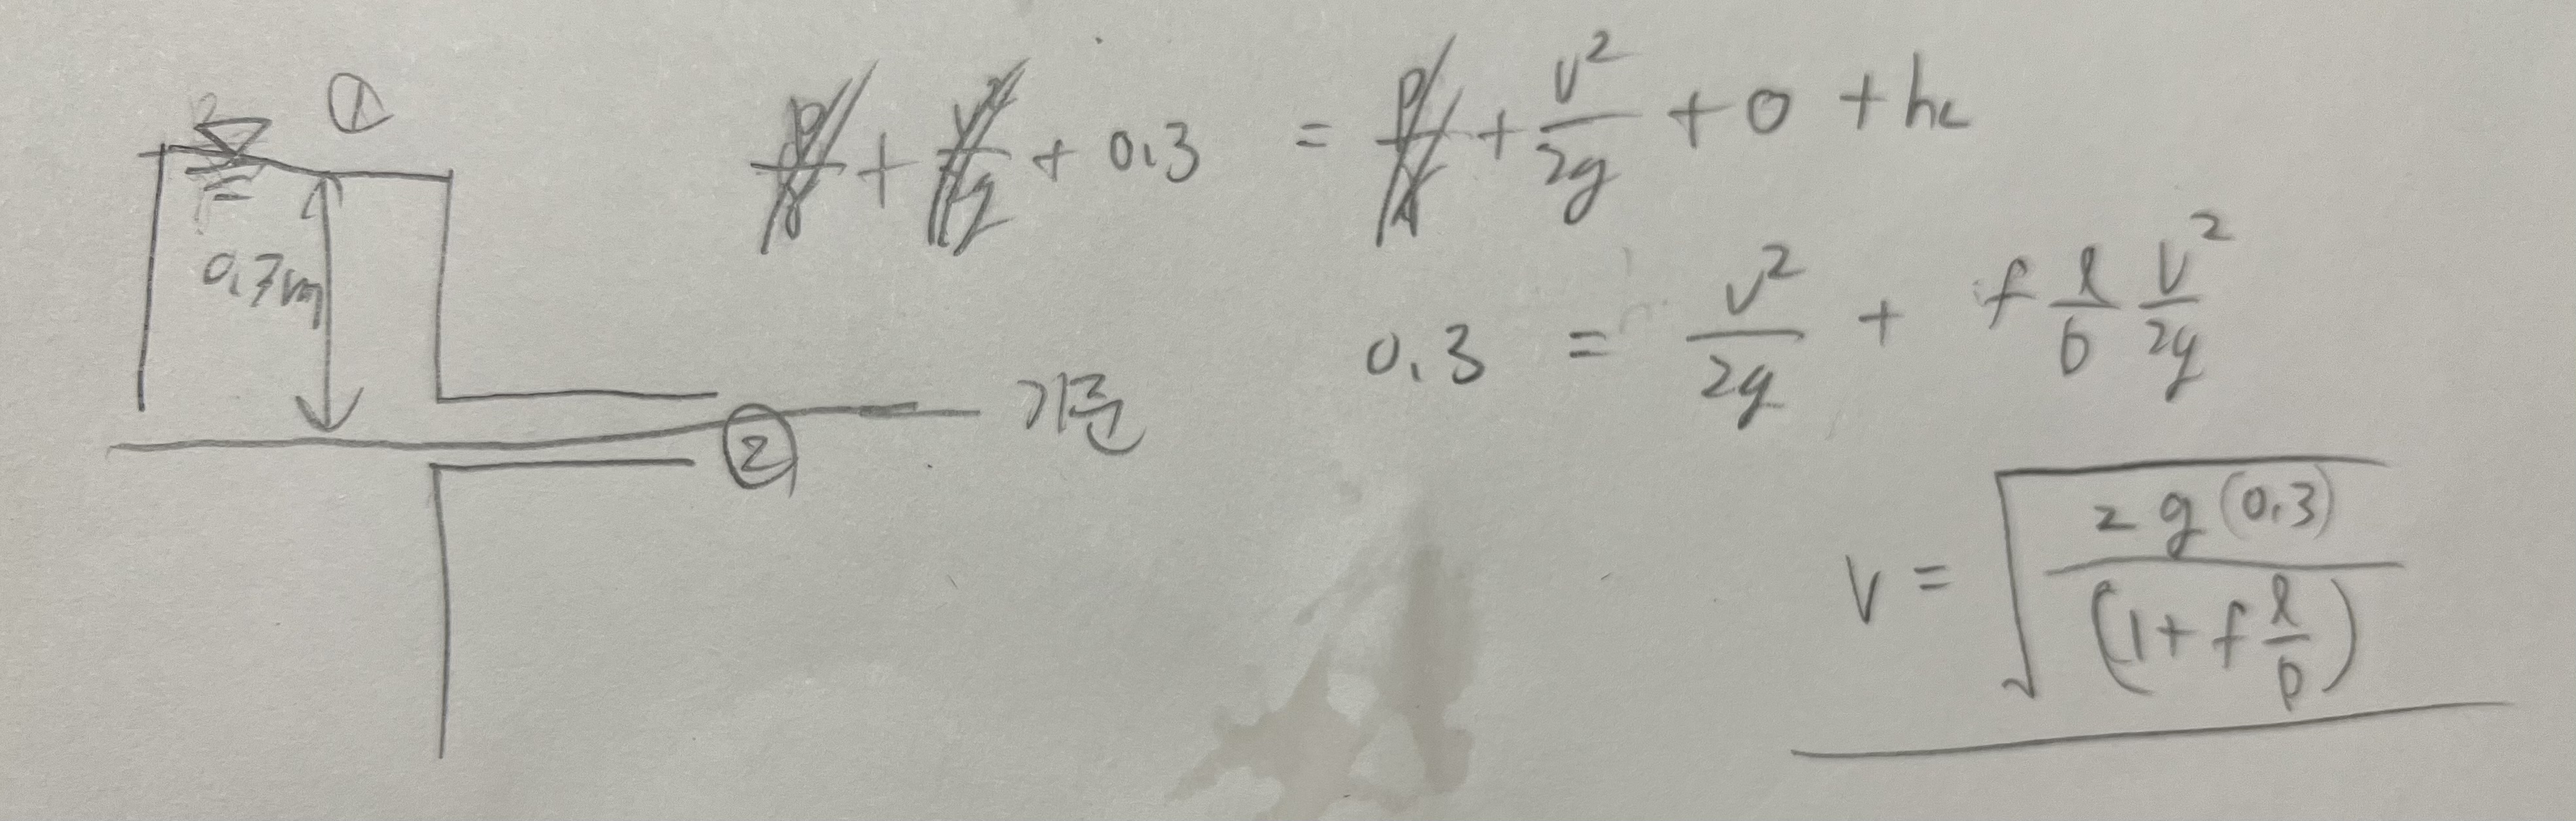 ①
0.3m
②
기준
P/γ + V²/2g + 0.3 = P/γ + V²/2g + 0 + hL
0.3 = V²/2g + f ℓ/D V²/2g
V = √(2g(0.3)/(1+f ℓ/D))